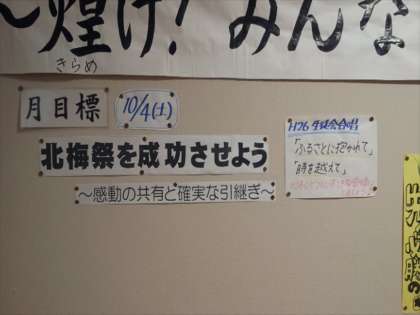 ～煌け！みんな
きらめ
月目標
10/4(土)
北梅祭を成功させよう
～感動の共有と確実な引継ぎ～
H26 生徒会合唱
「ふるさとに抱かれて」
「時を越えて」